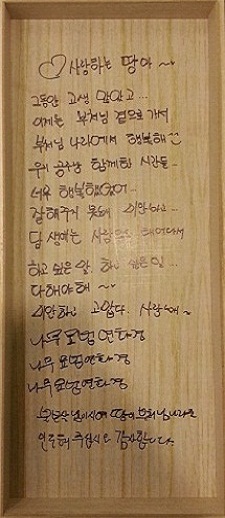 ♡사랑하는 땅아~
그동안 고생 많았고...
이제는 부처님 곁으로 가서
부처님 나라에서 행복해
우리 공주랑 함께한 시간들..
너무 행복했었어...
잘해주지 못해 미안하고...
담 생에는 사람으로 태어나서
하고 싶은 말. 하고 싶은 일...
다해야해~
미안하고 고맙다. 사랑해~
나무묘법연화경
나무묘법연화경
나무묘법연화경
땅이 부처님나라로
인도해 주십시오 감사합니다.